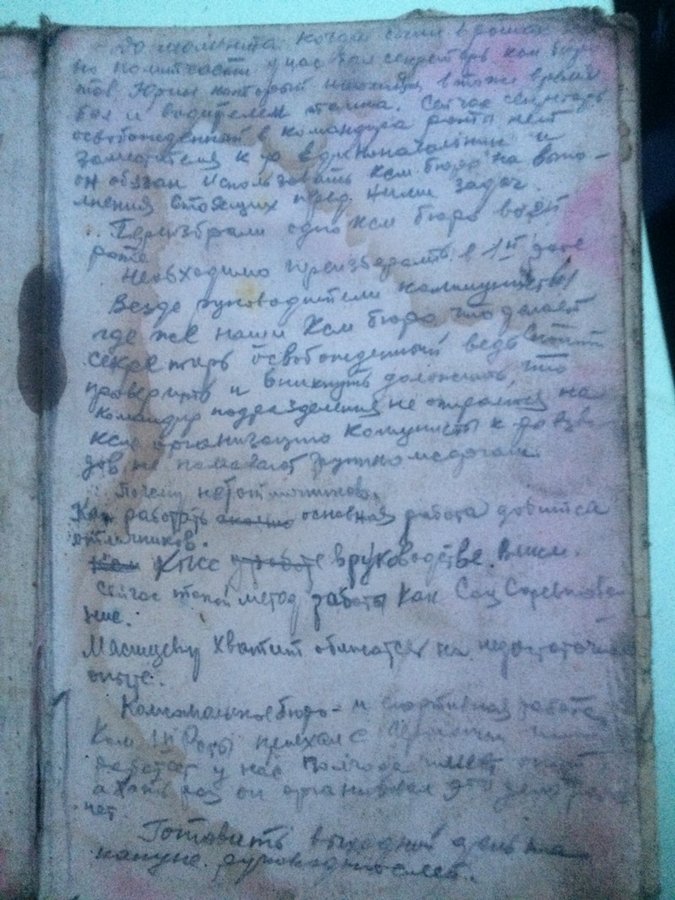 До момента когда были в ротах
но политчасти у нас был секретарь ксм бюро
тов. Юрин который в тоже время
был и водителем танка. Сейчас секретарь
освобожденный в командира роты нет
заместителя к-ра
он обязан использовать ксм. бюро на выпо-
лнения стоящих перед ними задач.
Переизбрали одно ксм бюро в
роте
Необходимо переизбрать в 1й роте
Везде руководители коммунисты
где же наши ксм бюро что делает
секретарь освобожденный ведь
проверить и вникнуть доложить, что
командир подразделения не опирается на
ксм организацию коммунисты к-ры взво-
дов не помогают группомсоргам.
Почему нет отличников.
Как работать основная работа добиться
отличников.
КПСС в руководстве. В.
Сейчас такой метод работы как Соц Соревнова-
ние.
Масищеву хватит обижатся на недостаточный
опыт.
Комсомольское бюро - и спортивная работа
Ком III роты приехал с
работает у нас полгода имеет опыт
а хоть раз он организовал это дело
нет
Готовить выходной день
накануне руководителей.